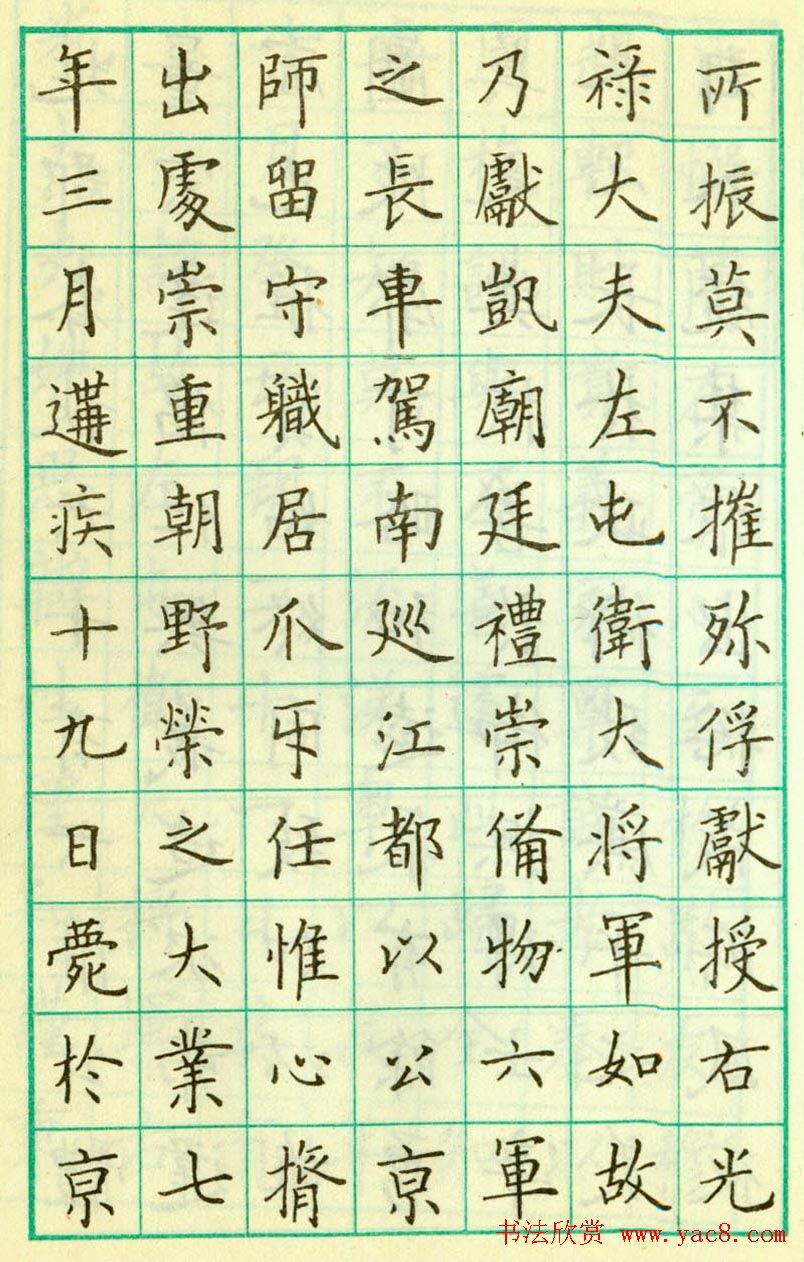 所振莫不摧殄俘獻授右光
禄大夫左屯衛大将軍如故
乃獻凱廟廷禮崇俻物六軍
之長車駕南巡江都以公亰
師留守軄居爪牙任惟心膂
出處崇重朝野榮之大業七
年三月遘疾十九日薨於亰
书法欣赏 www.yac8.com